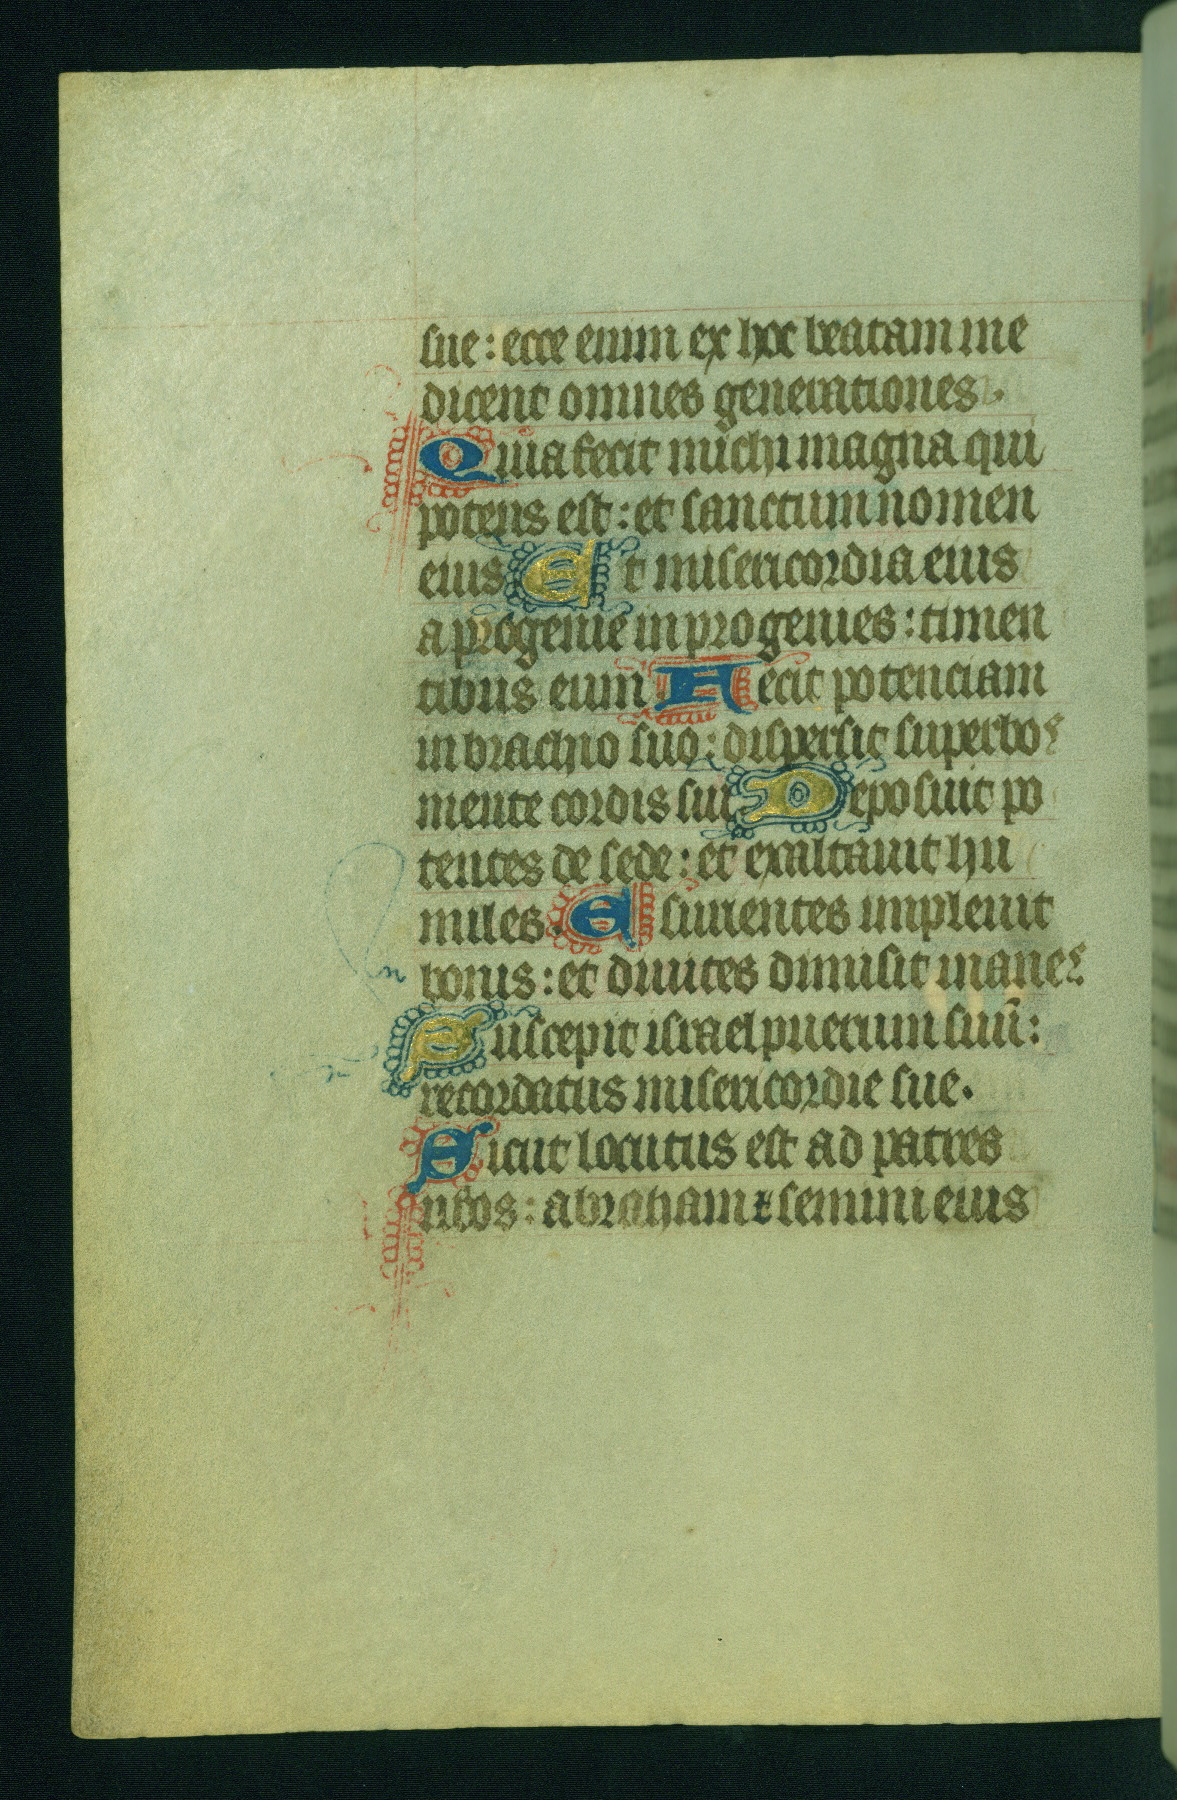 sue : ecce enim ex hoc beatam me
dicent omnes generationes.
Quia fecit michi magna qui
potens est : et sanctum nomen
eius Et misericordia eius
a progenie in progenies : timen
tibus eum Fecit potenciam
in brachio suo : dispersit superbos
mente cordis sui Deposuit po
tentes de sede : et exaltauit hu
miles. Esurientes impleuit
bonis : et diuites dimisit inanes
Suscepit israel puerum suū :
recordatus misericordie sue.
Sicut locutus est ad patres
nr̄os : abraham ⁊ semini eius